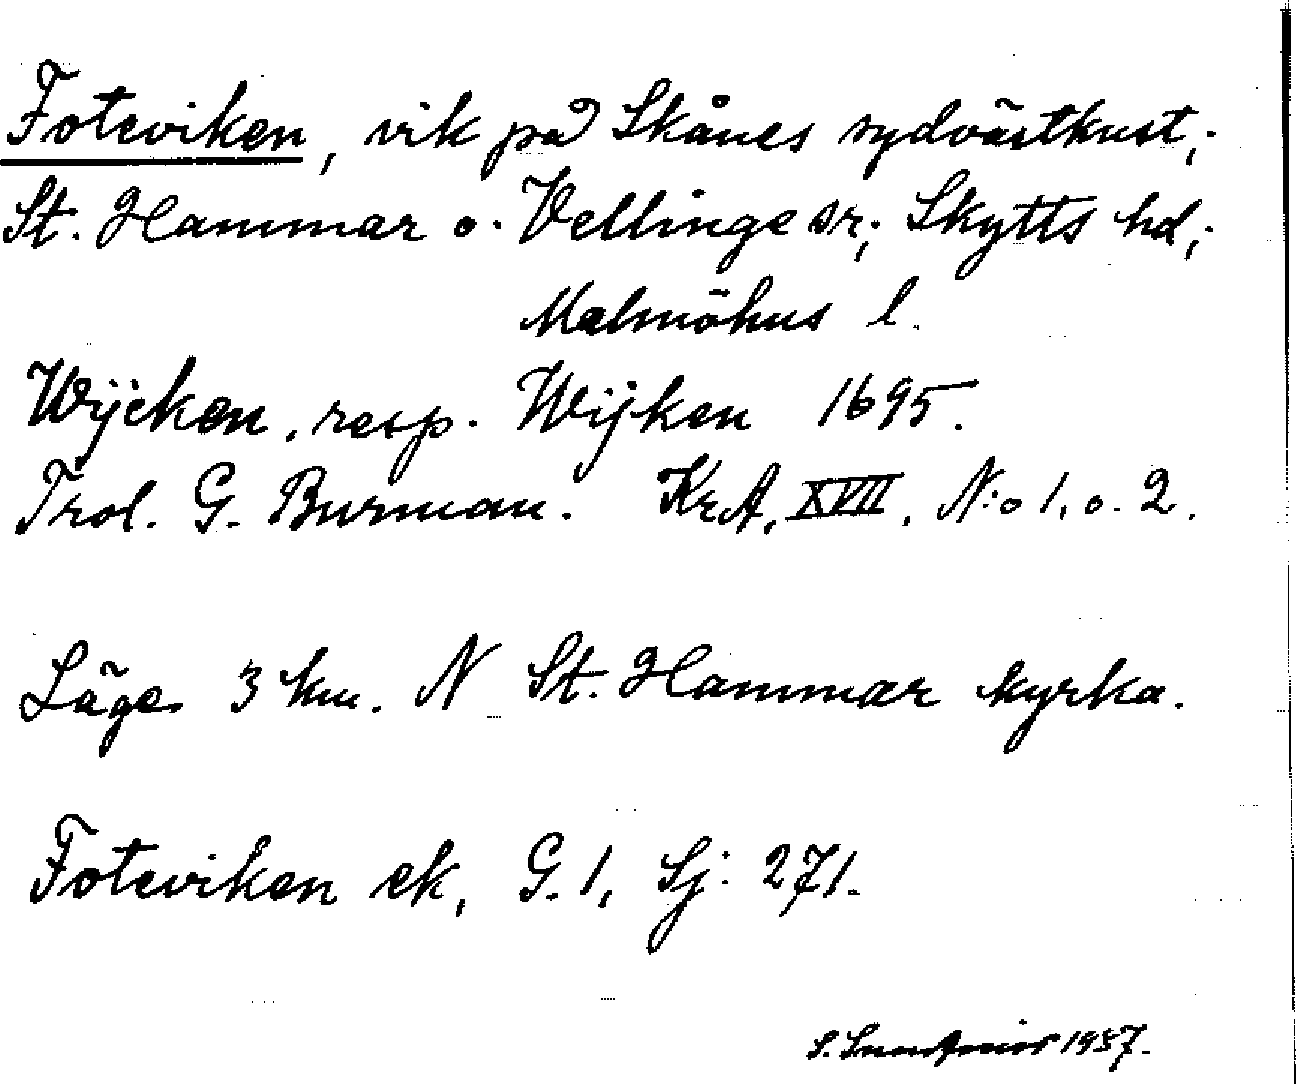 Foteviken, vik på Skånes sydvästkust,
St. Hammar o. Vellinge sr; Skytts hd,
Malmöhus l.
Wijcken, resp. Wijken 1695.
Trol. G. Burman. KrA, XVII, N:o 1, o. 2.
Läge 3 km. N St. Hammar kyrka.
Foteviken ek, G. 1, Sj: 271.
S. 1937.